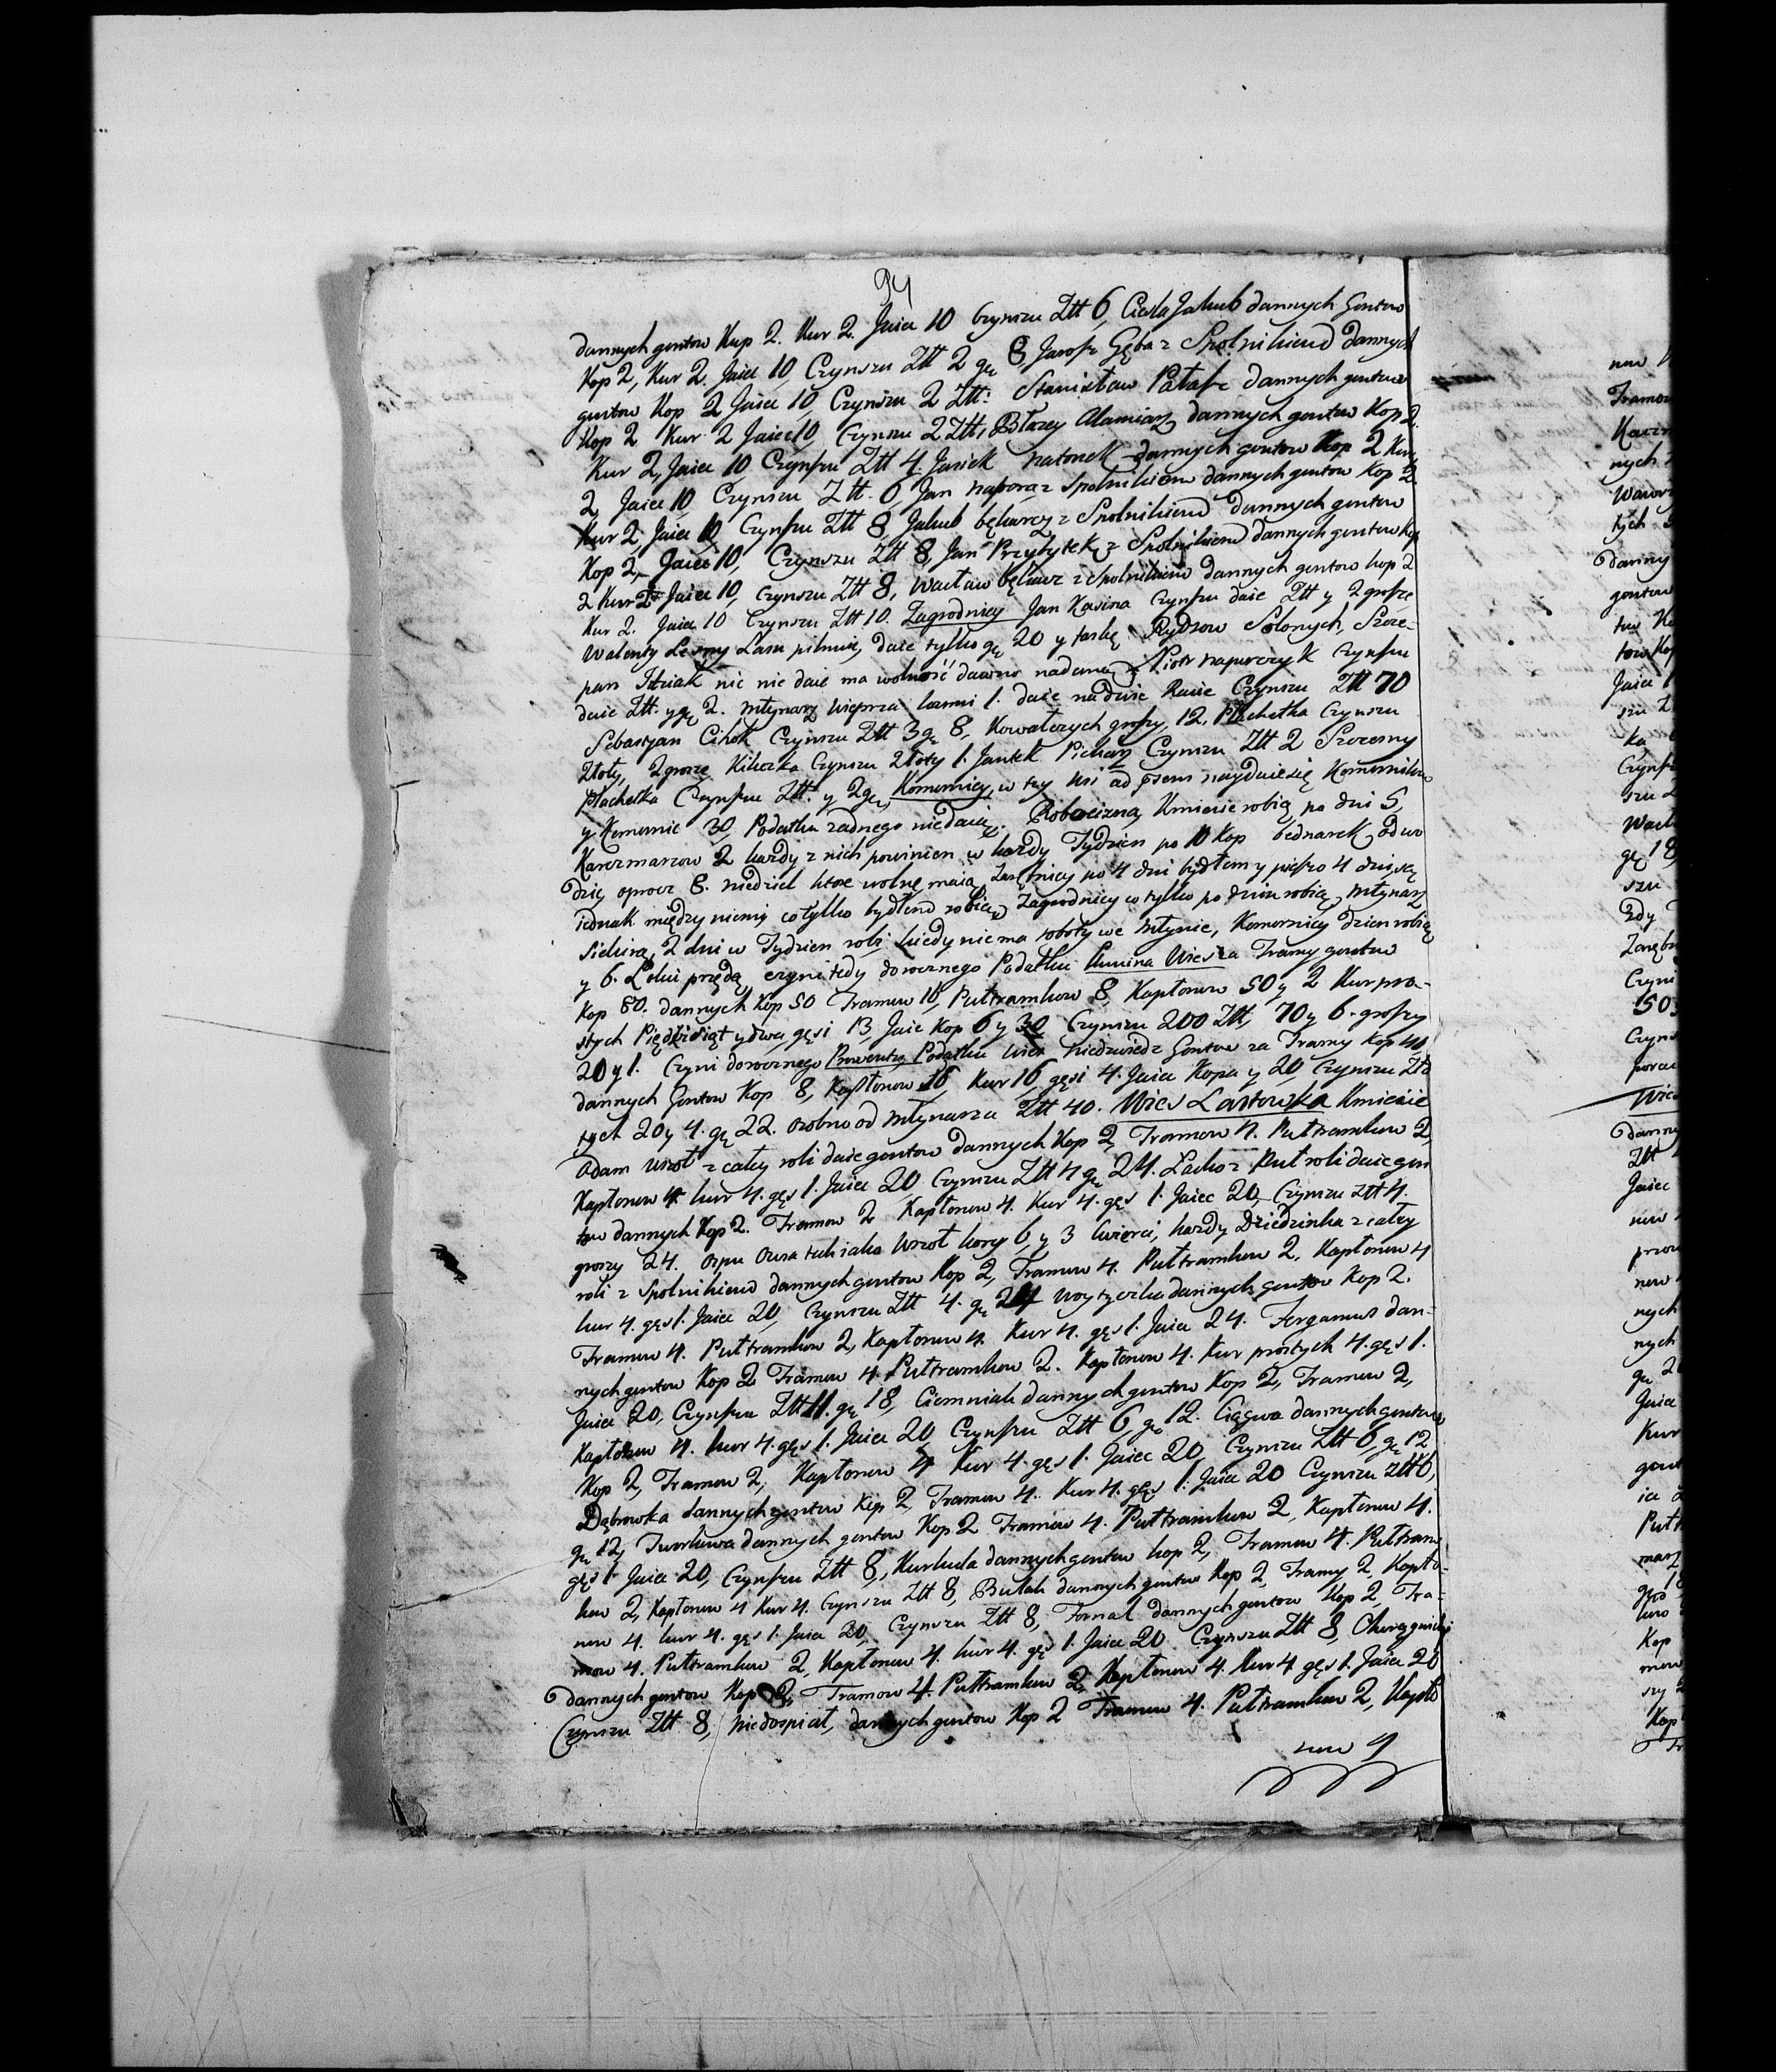 94
dannych gontow Kop 2. Kur 2. Jaiec 10 Czynszu Ztt 6, Ciela Jakub dannych Gontow
Kop 2, Kur 2. Jaiec 10, Czynszu Ztt 2 gr 8, Jarosz Gęba z Spolnikiem dannych
gontow Kop 2 Jaiec 10, Czynszu 2 Ztt: Stanisław dannych gontow
Kop 2 Kur 2 Jaiec 10, Czynszu 2 Ztt, Błazey dannych gontow Kop 2.
Kur 2, Jaiec 10 Czynszu Ztt 4. Jasiek dannych gontow Kop 2 Kur
2, Jaiec 10, Czynszu Ztt. 6, Jan z Spolnikiem dannych gontow Kop 2
Kur 2, Jaiec 10 Czynszu Ztt 8, Jakub z Spolnikiem dannych gontow
Kop 2, Jaiec 10, Czynszu Ztt 8, Jan Przybytek z Spolnikiem dannych gontow Kop
2 Kur 2 Jaiec 10, Czynszu Ztt 8, Wacław z Spolnikiem dannych gontow kop 2
Kur 2. Jaiec 10 Czynszu Ztt 10. Zagrodnicy Jan Kasina Czynszu daie Ztt y 2 grosze
Walenty Lesny Lasu pilnuie, daie tylko gr 20 y faskę Rydzow Solonych, Szcze-
pan nic nie daie ma wolność dawno nadaną, Piotr Czynszu
daie Ztt. y gr 2. Młynarz wieprza karmi 1. daie na dwie Racie Czynszu Ztt 70
Sebastyan Cihok Czynszu Ztt 3 gr 8, Kowalczych groszy 12, Płachetka Czynszu
Złoty, 2 grosze Czynszu Złoty 1. Jantek Czynszu Ztt 2 Szczesny
Płachetka Czynszu Ztt. y 2 gr, Komornicy, w tey wsi ad presens nayduie się Komornikow
y Komornic 30 Podatku zadnego niedaią. Robocizna Kmiecie robią po dni 5,
Karczmarzow 2 kazdy z nich powinien w kazdy Tydzien po 10 Kop bednarek, odwo
dzic oprocz 8. niedziel ktore wolne maią Zarębnicy po 4 dni bydłem y pieszo 4 dni, są
iednak między niemi co tylko bydłem robią, Zagrodnicy co tylko po dniu robią, Młynarz
Siekirą, 2 dni w Tydzien robi kiedy nie ma roboty we Młynie, Komornicy dzien robią
y 6. Łokci przędą, czyni tedy dorocznego Podatku Wieś za Tramy gontow
Kop 80. dannych Kop 50 Tramow 10, Puttramkow 8, Kapłonow 50 y 2 Kur pro-
stych Pięćdziesiąt y dwa, gęsi 13, Jaiec Kop 6 y 30 Czynszu 200 Ztt, 70 y 6. groszy
20 y 1. Czyni dorocznego Prowentu Podatku Wieś Niedzwiedz Gontow za Tramy Kop 40
dannych Gontow Kop 8, Kapłonow 16, Kur 16, gęsi 4. Jaiec Kopa y 20, Czynszu Zło
tych 20 y 4. gr 22. osobno od Młynarza Ztt 40. Wies Lastowka Kmiecie
Adam Wrzoł z całey roli daie gontow dannych Kop 2, Tramow 4. Puttramkow 2,
Kapłonow 4. kur 4. gęs 1. Jaiec 20 Czynszu Ztt 4 gr 24. z Puł roli daie gon
tow dannych Kop 2. Tramow 2 Kapłonow 4. Kur 4. gęs 1. Jaiec 20, Czynszu ztt 4.
groszy 24. Ospu Owsa tak iako Wrzoł kory 6, y 3 kwierci, kazdy Dziedzinka z całey
roli z Spolnikiem dannych gontow Kop 2, Tramow 4. Puttramkow 2, Kapłonow 4
kur 4. gęs 1. Jaiec 20, Czynszu Ztt 4. gr 24 Woytyczka dannych gontow Kop 2.
Tramow 4. Puttramkow 2, Kapłonow 4. Kur 4. gęs 1. Jaiec 24. Fergamus dan-
nych gontow Kop 2 Tramow 4. Puttramkow 2. Kapłonow 4. Kur prostych 4. gęs 1.
Jaiec 20, Czynszu Ztt 11. gr 18, Ciemniak dannych gontow Kop 2, Tramow 2,
Kapłonow 4. kur 4. gęs 1. Jaiec 20 Czynszu Ztt 6, gr 12. Cięgwa dannych gontow
Kop 2, Tramow 2, Kapłonow 4 Kur 4. gęs 1. Jaiec 20, Czynszu Ztt 6, gr 12
Dąbrowka dannych gontow Kop 2, Tramow 4. Kur 4. gęs 1. Jaiec 20 Czynszu Ztt 6,
gr 12, dannych gontow Kop 2 Tramow 4. Puttramkow 2, Kapłonow 4.
gęs 1 Jaiec 20, Czynszu Ztt 8, Kurkula dannych gontow kop 2, Tramow 4. Puttram
kow 2, Kapłonow 4 Kur 4. Czynszu Ztt 8, Bulak dannych gontow Kop 2, Tramy 2, Kapło-
now 4. kur 4. gęs 1. Jaiec 20 Czynszu Ztt 8, Fornal dannych gontow Kop 2, Tra-
mow 4. Puttramkow 2, Kapłonow 4. kur 4. gęs 1. Jaiec 20 Czynszu Ztt 8,
dannych gontow Kop 2, Tramow 4. Puttramkow 2, Kapłonow 4. kur 4 gęs 1. Jaiec 20
Czynszu Ztt 8, Niedospiał, dannych gontow Kop 2 Tramow 4. Puttramkow 2, Kapło
now 4